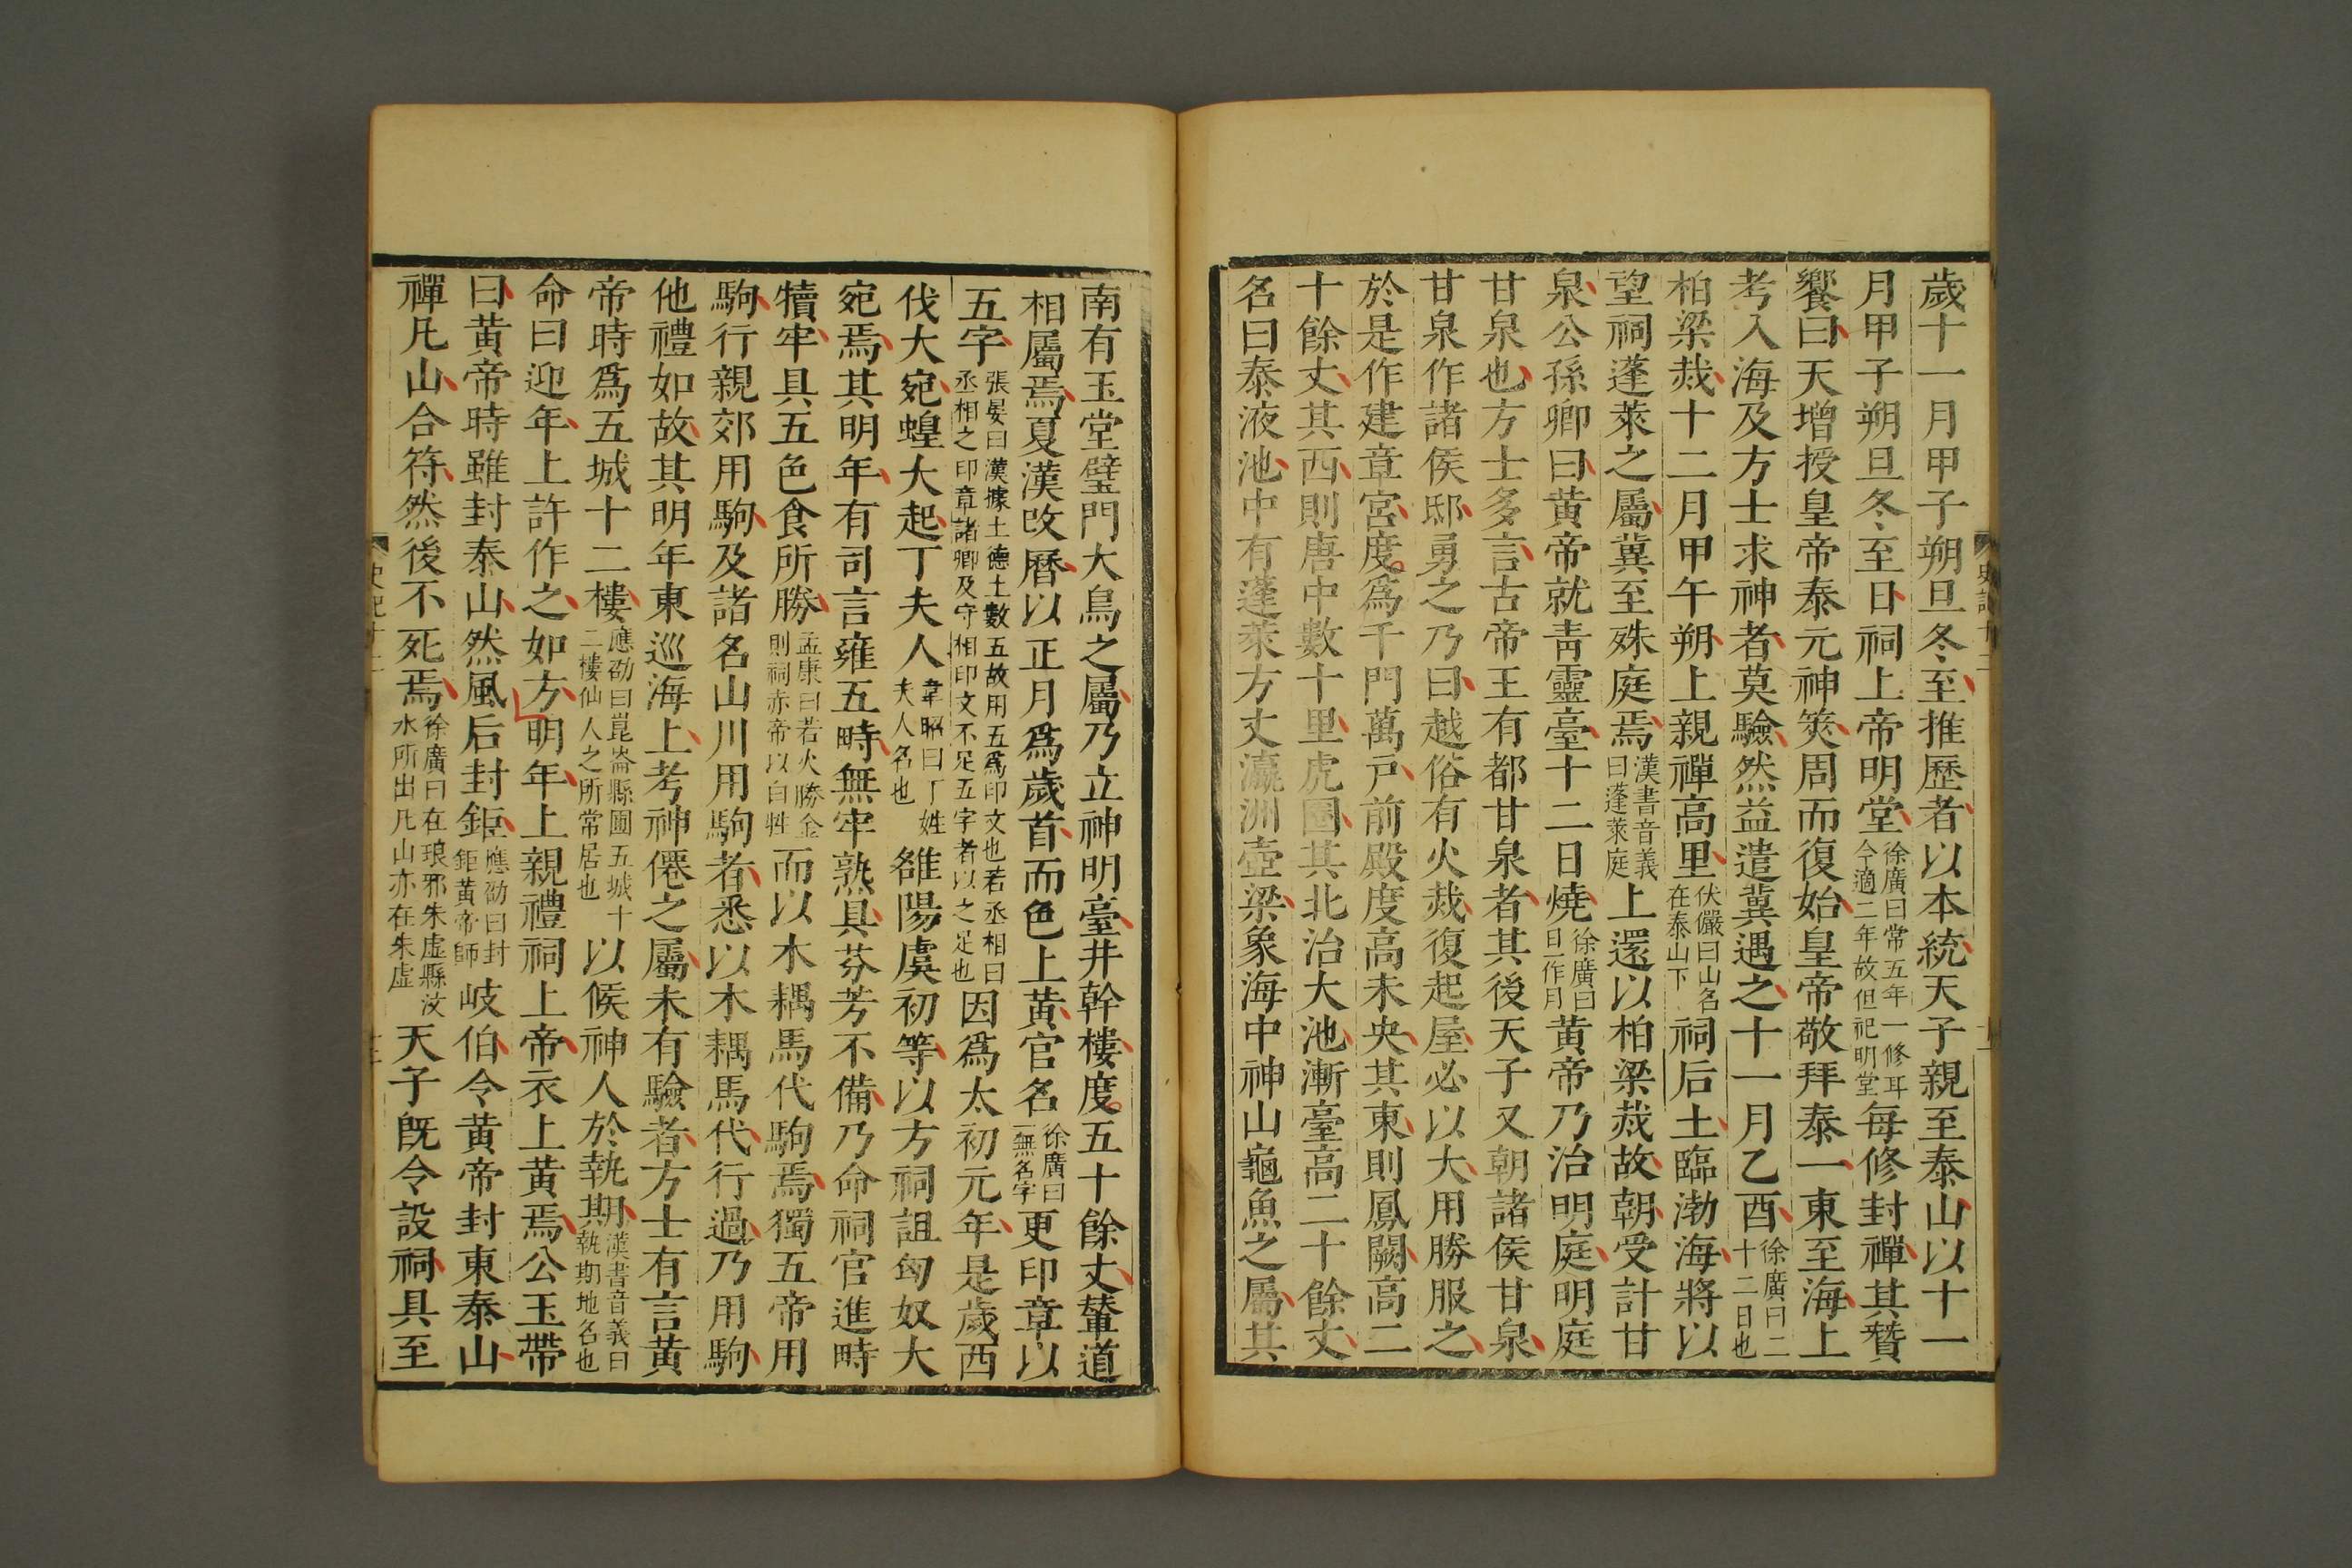 歲十一月甲子朔旦冬至推歷者以本統天子親至泰山以十一
月甲子朔旦冬至日祠上帝明堂徐廣曰常五年一修耳今適二年故但祀明堂每修封禪其贊
饗曰天增授皇帝泰元神筴周而復始皇帝敬拜泰一東至海上
考入海及方士求神者莫驗然益遣冀遇之十一月乙酉徐廣曰二十二日也
柏梁烖十二月甲午朔上親禪高里伏儼曰山名在泰山下祠后土臨渤海將以
望祠蓬萊之屬冀至殊庭焉漢書音義曰蓬萊庭上還以柏梁烖故朝受計甘
泉公孫卿曰黃帝就靑靈臺十二日燒徐廣曰日一作月黃帝乃治明庭明庭
甘泉也方士多言古帝王有都甘泉者其後天子又朝諸侯甘泉
甘泉作諸侯邸勇之乃曰越俗有火烖復起屋必以大用勝服之
於是作建章宮度爲千門萬戶前殿度高未央其東則鳳闕高二
十餘丈其西則唐中數十里虎圈其北治大池漸臺高二十餘丈
名曰泰液池中有蓬萊方丈瀛洲壺梁象海中神山龜魚之屬其
南有玉堂璧門大鳥之屬乃立神明臺井幹樓度五十餘丈輦道
相屬焉夏漢改曆以正月爲歲首而色上黃官名徐廣曰一無名字更印章以
五字張晏曰漢據土德土數五故用五爲印文也若丞相曰丞相之印章諸卿及守相印文不足五字者以之足也因爲太初元年是歲西
伐大宛蝗大起丁夫人韋昭曰丁姓夫人名也雒陽虞初等以方祠詛匈奴大
宛焉其明年有司言雍五畤無牢熟具芬芳不備乃命祠官進畤
犢牢具五色食所勝孟康曰若火勝金則祠赤帝以白牲而以木耦馬代駒焉獨五帝用
駒行親郊用駒及諸名山川用駒者悉以木耦馬代行過乃用駒
他禮如故其明年東巡海上考神僊之屬未有驗者方士有言黃
帝時爲五城十二樓應劭曰崑崙縣圃五城十二樓仙人之所常居也以候神人於執期漢書音義曰執期地名也
命曰迎年上許作之如方明年上親禮祠上帝衣上黃焉公玉帶
曰黃帝時雖封泰山然風后封鉅應劭曰封鉅黃帝師岐伯令黃帝封東泰山
禪凡山合符然後不死焉徐廣曰在琅邪朱虛縣汶水所出凡山亦在朱虛天子旣令設祠具至